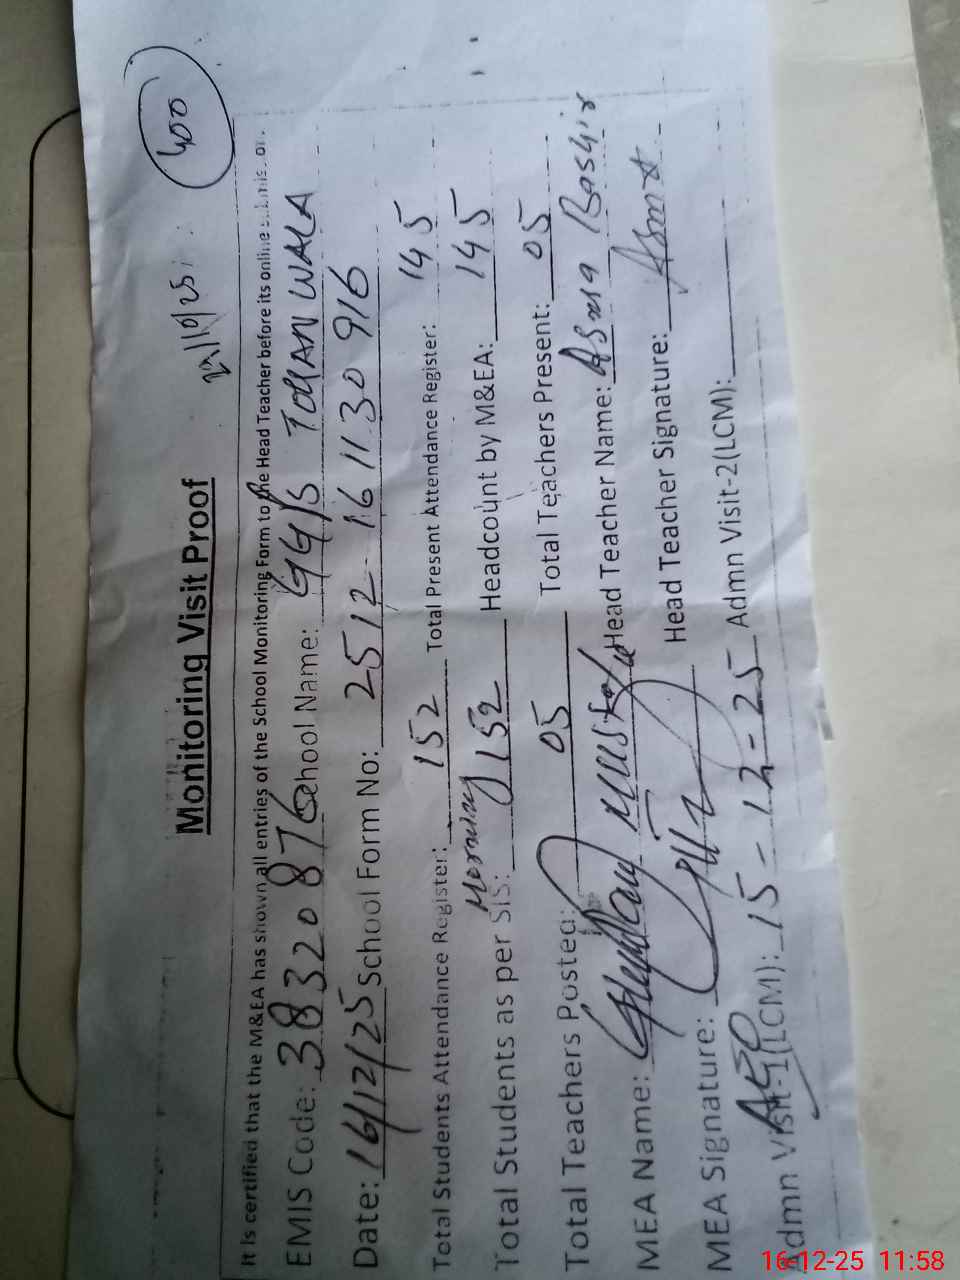 400
Monitoring Visit Proof
It Is certified that the M&EA has shown all entries of the School Monitoring Form to the Head Teacher before its online
EMIS Code: 38320876 School Name: GG P/S TOHAN WALA
Date: 16/12/25 School Form No: 2512 16 1130 916
Total Students Attendance Register: 152 Total Present Attendance Register: 145
Morning
Total Students as per SIS: 152 Headcount by M&EA: 145
Total Teachers Posted: 05 Total Teachers Present: 05
MEA Name: Ghulam Mustafa Head Teacher Name: Asma Bashir
MEA Signature: Head Teacher Signature: Asma
AEO
Admn Visit-1(LCM): 15-12-25 Admn Visit-2(LCM):
16-12-25 11:58